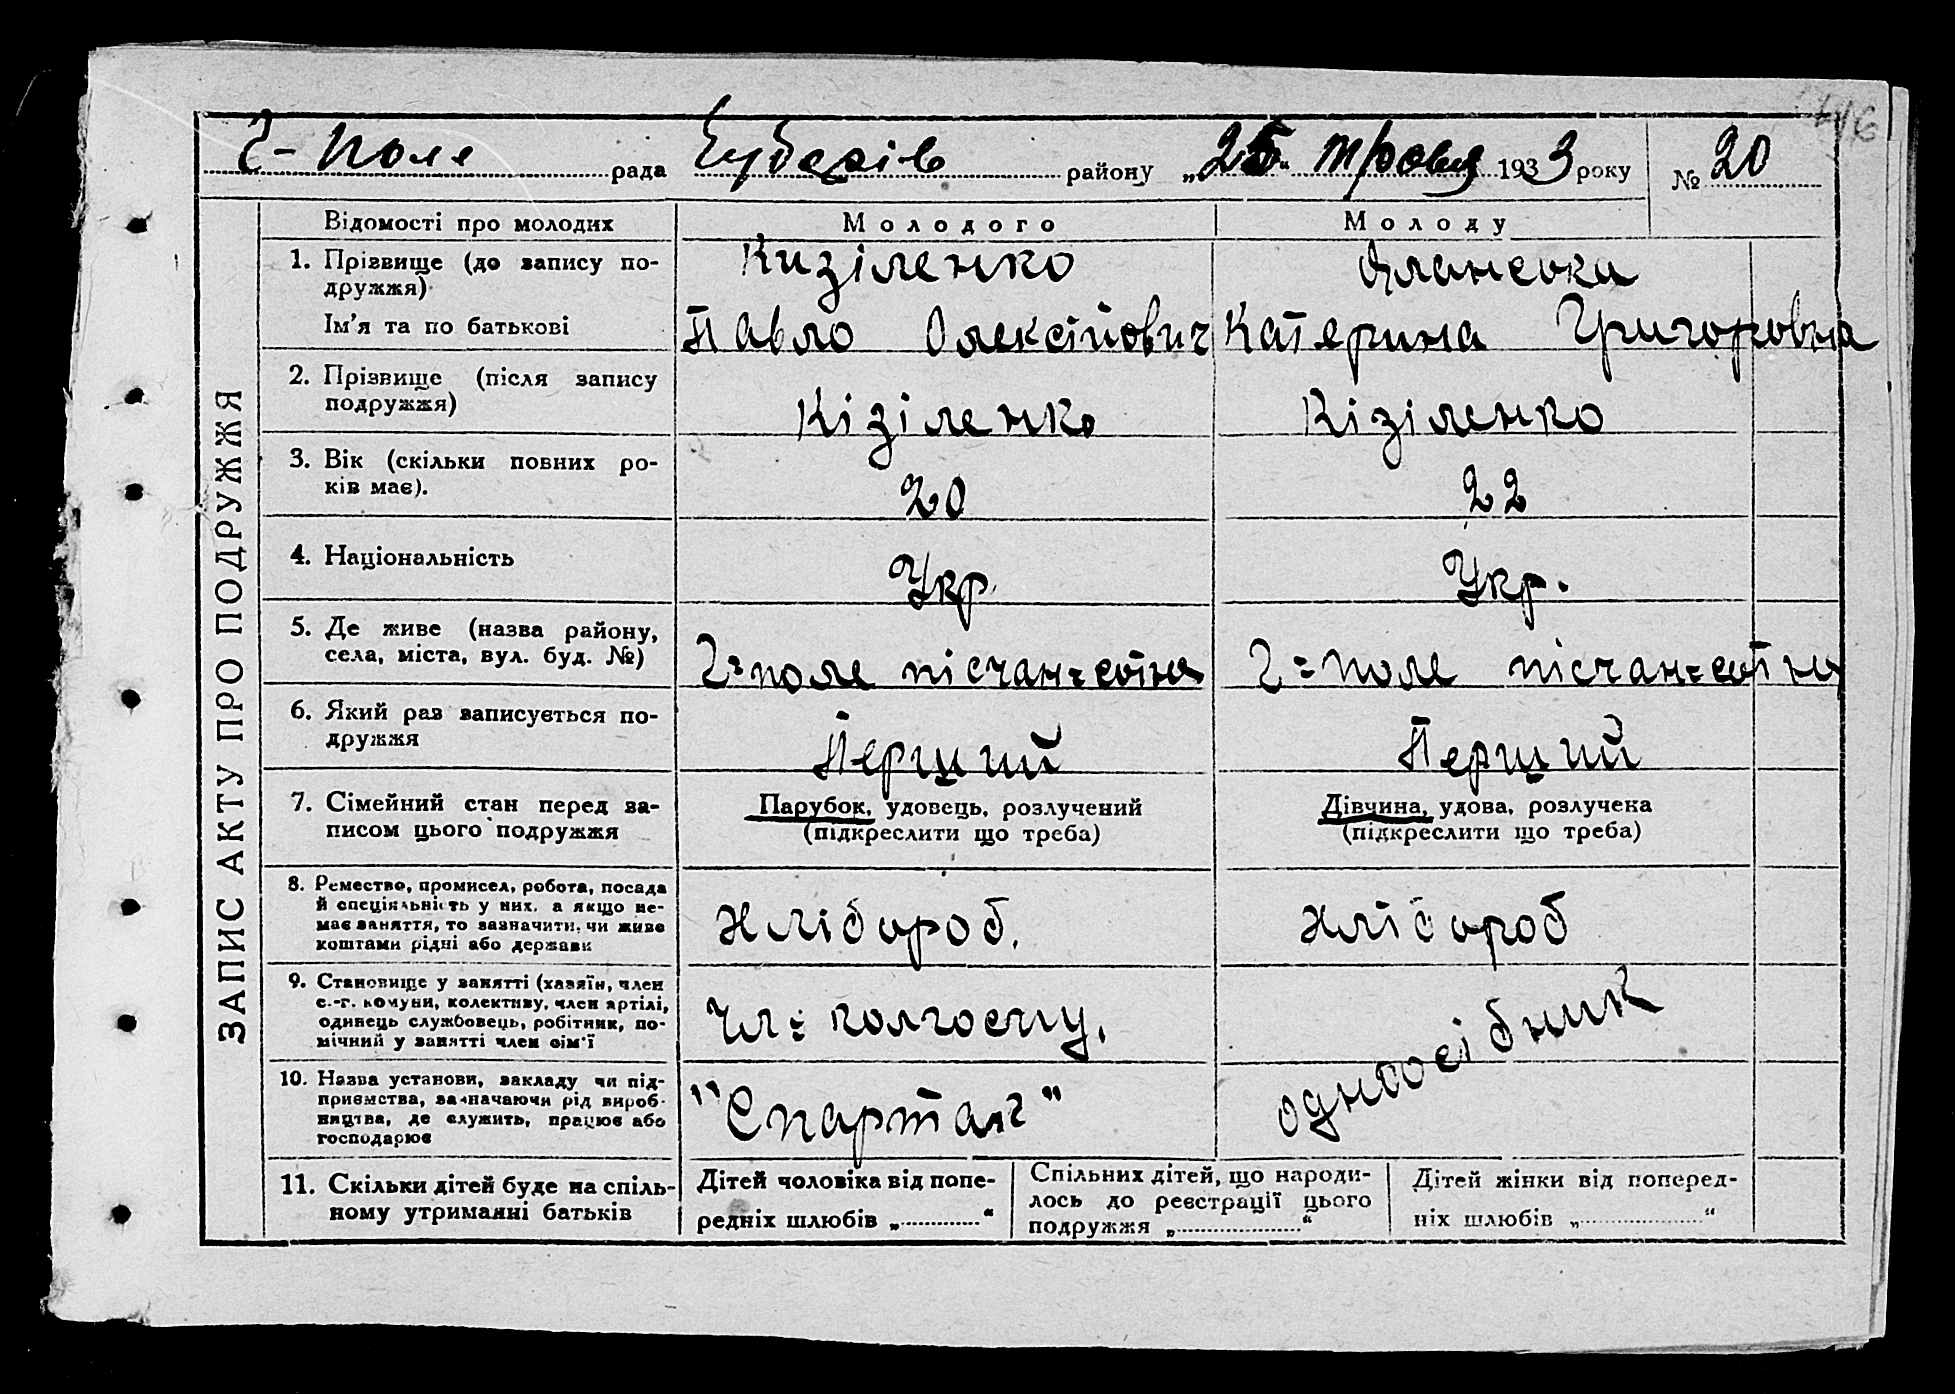 Г- Поле рада района Бубесів району „25“ травня 1933 року № 20
ЗАПИС АКТУ ПРО ПОДРУЖЖЯ
Відомості про молодих Молодого Молоду
1. Прізвище (до запису по- Кизіленко
дружжя)
Ім'я та по батькові Павло Олексійович Катерина Григоровна
2. Прізвище (після запису
подружжя) Кізіленко Кізіленко
3. Вік (скільки повних ро-
ків має). 20 22
4. Національність Укр. Укр.
5. Де живе (назва району,
села, міста, вул. буд. №) Г=поле пісчан=сотня Г=поле пісчан=сотня
6. Який раз записується по-
дружжя Перший Перший
7. Сімейний стан перед за- Парубок, удовець, розлучений Дівчина, удова, розлучена
писом цього подружжя (підкреслити що треба) (підкреслити що треба)
8. Ремество, промисел, робота, посада
й спеціяльність у них, а якщо не-
має заняття, то зазначити, чи живе Хлібороб. Хлібороб
коштами рідні або держави
9. Становище у занятті (хазяїн, член
с.-г. комуни, колективу, член артілі,
одинець службовець, робітник, по- Чл= колгоспу. одноосібник
мічний у занятті член сім'ї
10. Назва установи, закладу чи під-
приємства, зазначаючи рід вироб-
ництва, де служить, працює або "Спартак"
господарює
11. Скільки дітей буде на спіль- Дітей чоловіка від попе- Спільних дітей, що народи- Дітей жінки від поперед-
ному утриманні батьків редніх шлюбів „ “ лось до реєстрації цього ніх шлюбів „ “
подружжя „ “